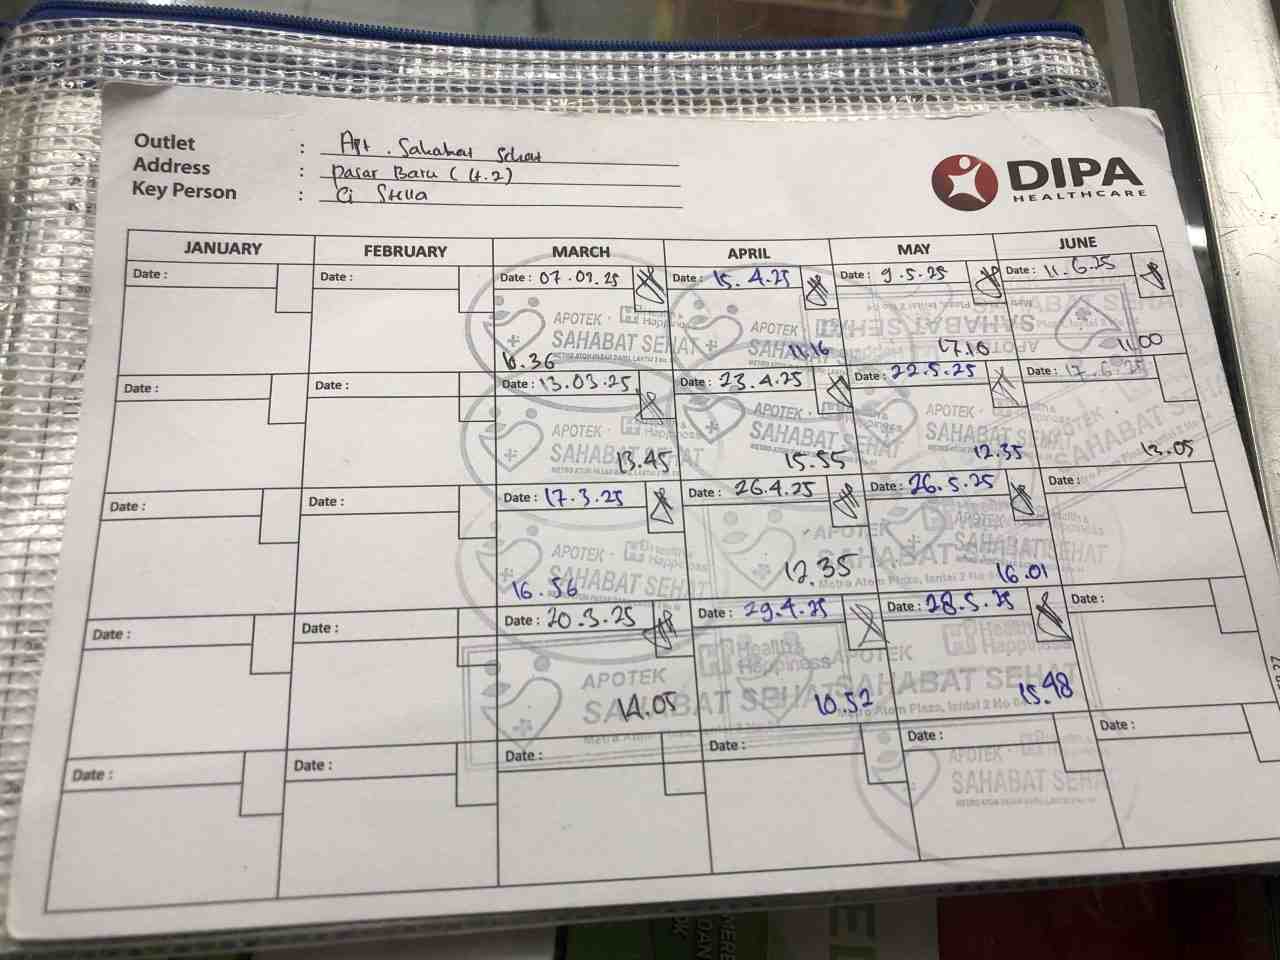 Outlet : Apt. Sahabat Sehat
Address : Pasar Baru (Lt.2)
Key Person : Ci Stella
DIPA
HEALTHCARE
JANUARY FEBRUARY MARCH APRIL MAY JUNE
Date : Date : Date : 07.03.25 Date : 15.4.25 Date : 9.5.25 Date : 11.6.25
APOTEK Health & Happiness
SAHABAT SEHAT
16.36 11.16 17.10 11.00
Date : Date : Date : 13.03.25 Date : 23.4.25 Date : 22.5.25 Date : 17.6.25
APOTEK
SAHABAT SEHAT
13.45 15.55 12.35 13.05
Date : Date : Date : 17.3.25 Date : 26.4.25 Date : 26.5.25 Date :
APOTEK
SAHABAT SEHAT
Metro Atom Plaza, lantai 2 No
16.56 12.35 16.01
Date : Date : Date : 20.3.25 Date : 29.4.25 Date : 28.5.25 Date :
APOTEK Health & Happiness
SAHABAT SEHAT
Metro Atom Plaza, lantai 2 No
14.05 10.52 15.48
Date : Date : Date : Date : Date : Date :
APOTEK
SAHABAT SEHAT